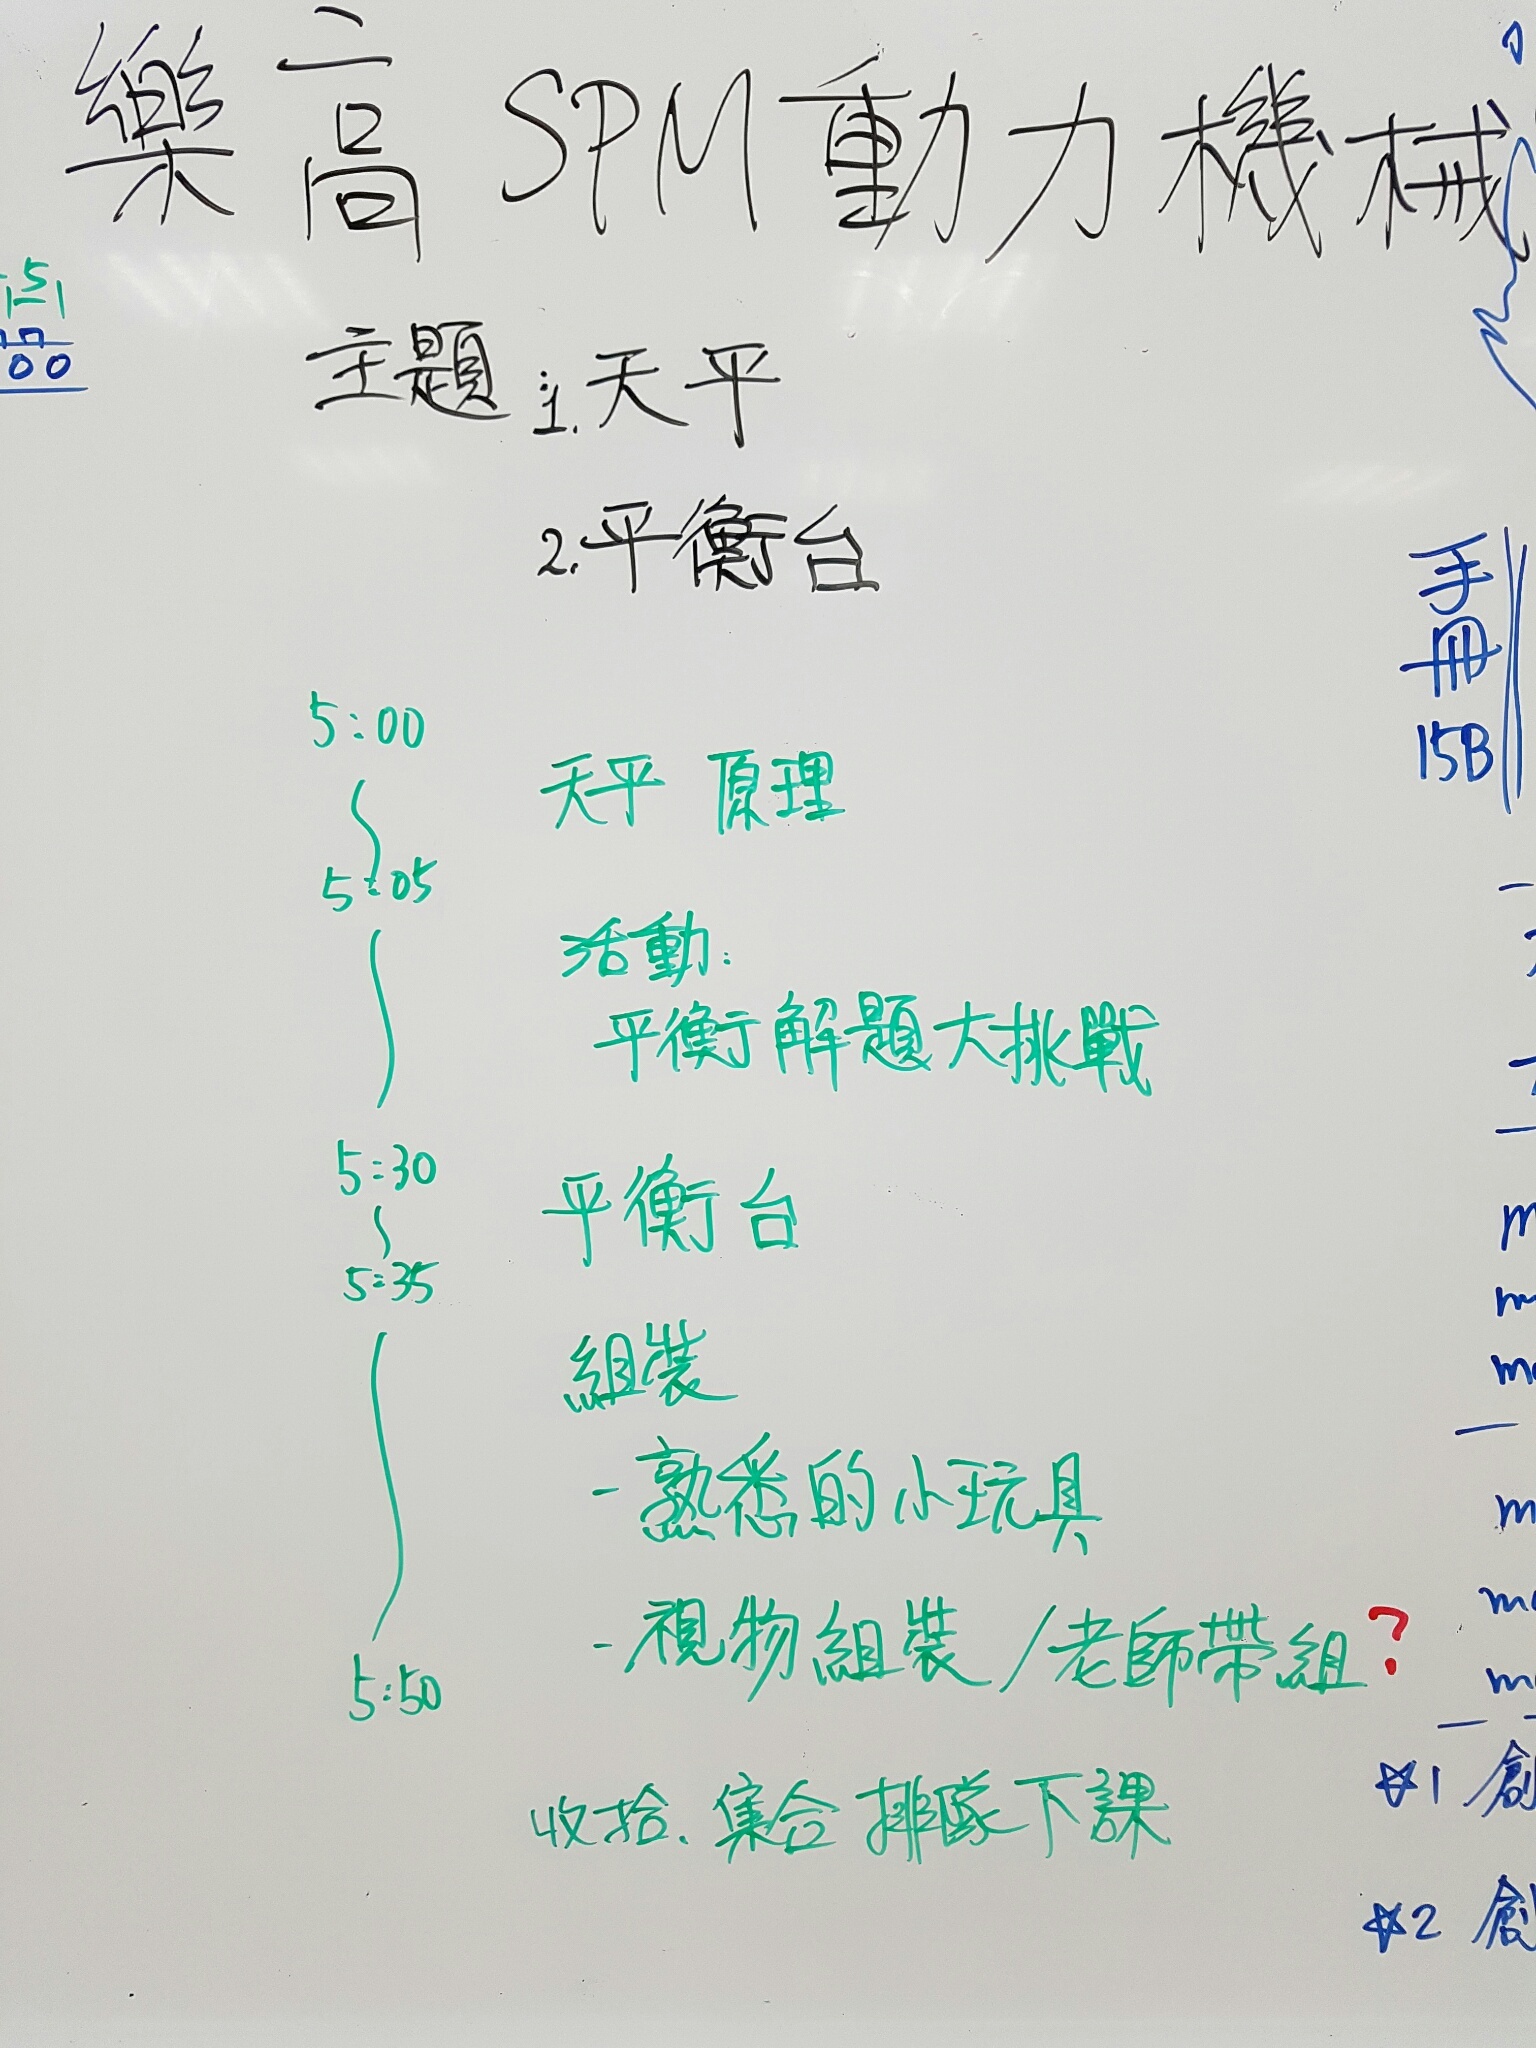 樂高 SPM 動力機械
主題:1.天平
2.平衡台
5:00
天平 原理
5:05
活動:
平衡解題大挑戰
5:30
平衡台
5:35
組裝
-熟悉的小玩具
-視物組裝/老師帶組?
5:50
收拾、集合 排隊下課
51
00
手冊
15B
☆1 創
☆2 創